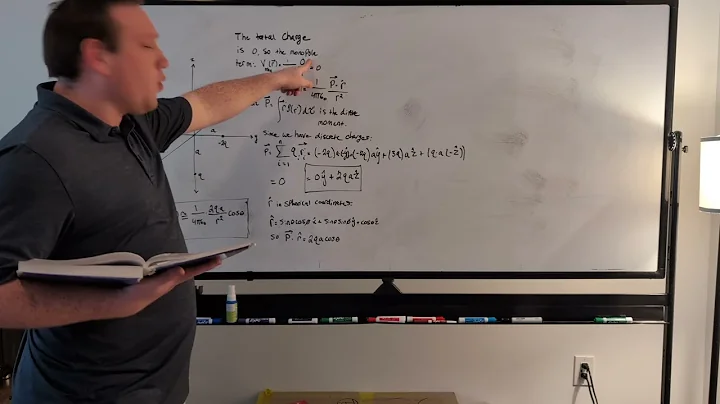 The total Charge
is 0, so the monopole
term: V (r⃗) = 1 0 = 0
1 P⃗ · r̂
4πε₀ r²
P⃗ = ∫ r⃗ ρ(r⃗) dτ is the dipole
moment.
Since we have discrete charges:
P⃗ = Σ qᵢ r⃗ᵢ = (-2q)a(-ŷ) + (-2q)aŷ + (3q)aẑ + (q·a(-ẑ))
n
i=1
= 0 = 0ŷ + 2qaẑ
r̂ in spherical coordinates:
r̂ = sinθcosφ x̂ + sinθsinφ ŷ + cosθ ẑ
so P⃗ · r̂ = 2qa cosθ
z
a
y
-2q
a
q
≅ 1 2qa cosθ
4πε₀ r²